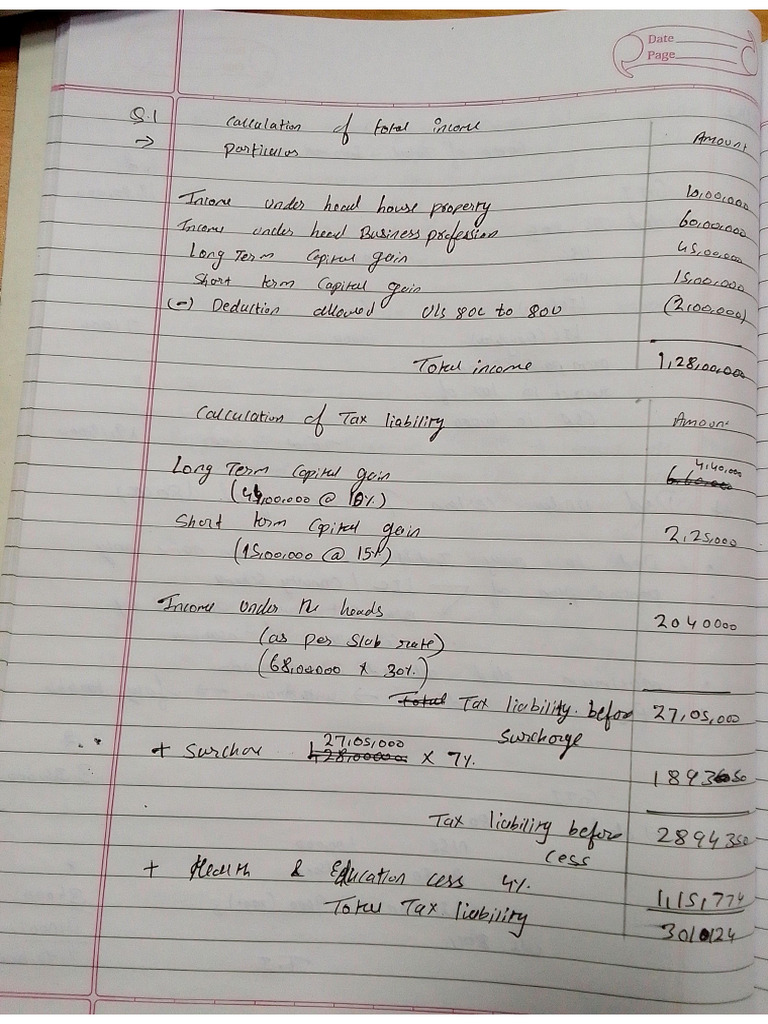 Date
Page
Q.1 Calculation of total income
→ particulas Amount
Income under head house property 10,00,000
Income under head Business profession 60,00,000
Long Term Capital gain 45,00,000
Short term Capital gain 15,00,000
(-) Deduction allowed U/s 80C to 80U (2,00,000)
Total income 1,28,00,000
Calculation of Tax liability Amount
4,40,000
Long Term Capital gain 6,60,000
(44,00,000 @ 10%)
Short term Capital gain 2,25,000
(15,00,000 @ 15%)
Income under the heads 2040000
(as per slab rate)
(68,00000 x 30%)
Total Tax liability before 27,05,000
surcharge
27,05,000
+ Surchare 1,28,00000 x 7% 189350
Tax liability before 2894350
cess
+ Health & Education cess 4% 1,15,774
Total Tax liability 3010124